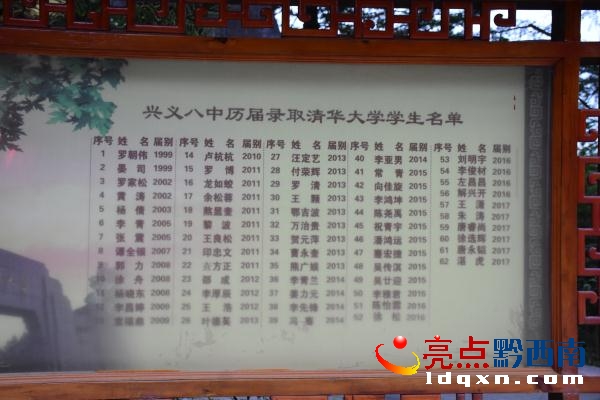 兴义八中历届录取清华大学学生名单
序号 姓 名 届别 序号 姓 名 届别 序号 姓 名 届别 序号 姓 名 届别 序号 姓 名 届别
1 罗朝伟 1999 14 卢杭杭 2010 27 汪定艺 2013 40 李亚男 2014 53 刘明宇 2016
2 晏 司 1999 15 罗 博 2011 28 付荣辉 2013 41 常 青 2015 54 李俊材 2016
3 罗家松 2002 16 龙如蛟 2011 29 罗 清 2013 42 向佳旋 2015 55 左昌昌 2016
4 黄 涛 2002 17 余松蓉 2011 30 王 颗 2013 43 李鸿坤 2015 56 解兴开 2016
5 杨 倩 2003 18 敖显奎 2011 31 鄂吉波 2013 44 陈尧禹 2015 57 王 潇 2017
6 李 青 2005 19 黎 波 2011 32 万治贵 2013 45 祝青宇 2015 58 朱 涛 2017
7 张 震 2005 20 王良松 2011 33 贺元萍 2013 46 潘鸿远 2015 59 唐睿尚 2017
8 谭全领 2007 21 印忠文 2011 34 曹永奎 2013 47 蹇宏捷 2015 60 徐选辉 2017
9 郭 力 2008 22 方正 2012 35 熊广娱 2013 48 吴传淇 2015 61 唐永韬 2017
10 徐 舟 2008 23 邵 成 2012 36 李菁兰 2014 49 吴廿迎 2015 62 湛 虎 2017
杨晓东 2008 24 李厚辰 2012 37 姜力元 2014 50 李雅君 2016
12 李昌婷 2009 25 王 浩 2012 38 李先锋 2014 51 陈怡霖 2016
2009 26 叶德英 2013 39 冯 2014 52 徐 松 2016
亮点黔西南
ldqxn.com